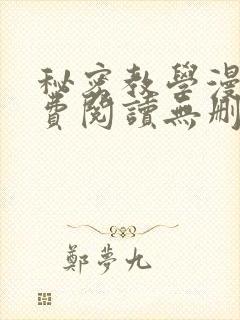 秘密教學漫
費閱讀無刪
鄭夢九